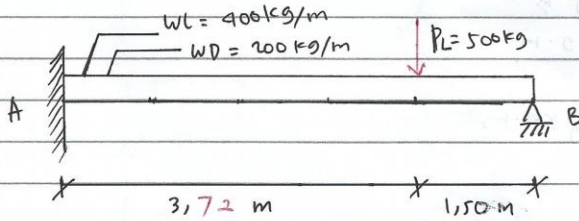 WL = 400 kg/m
WD = 200 kg/m
PL = 500 kg
A
B
3,72 m
1,50 m